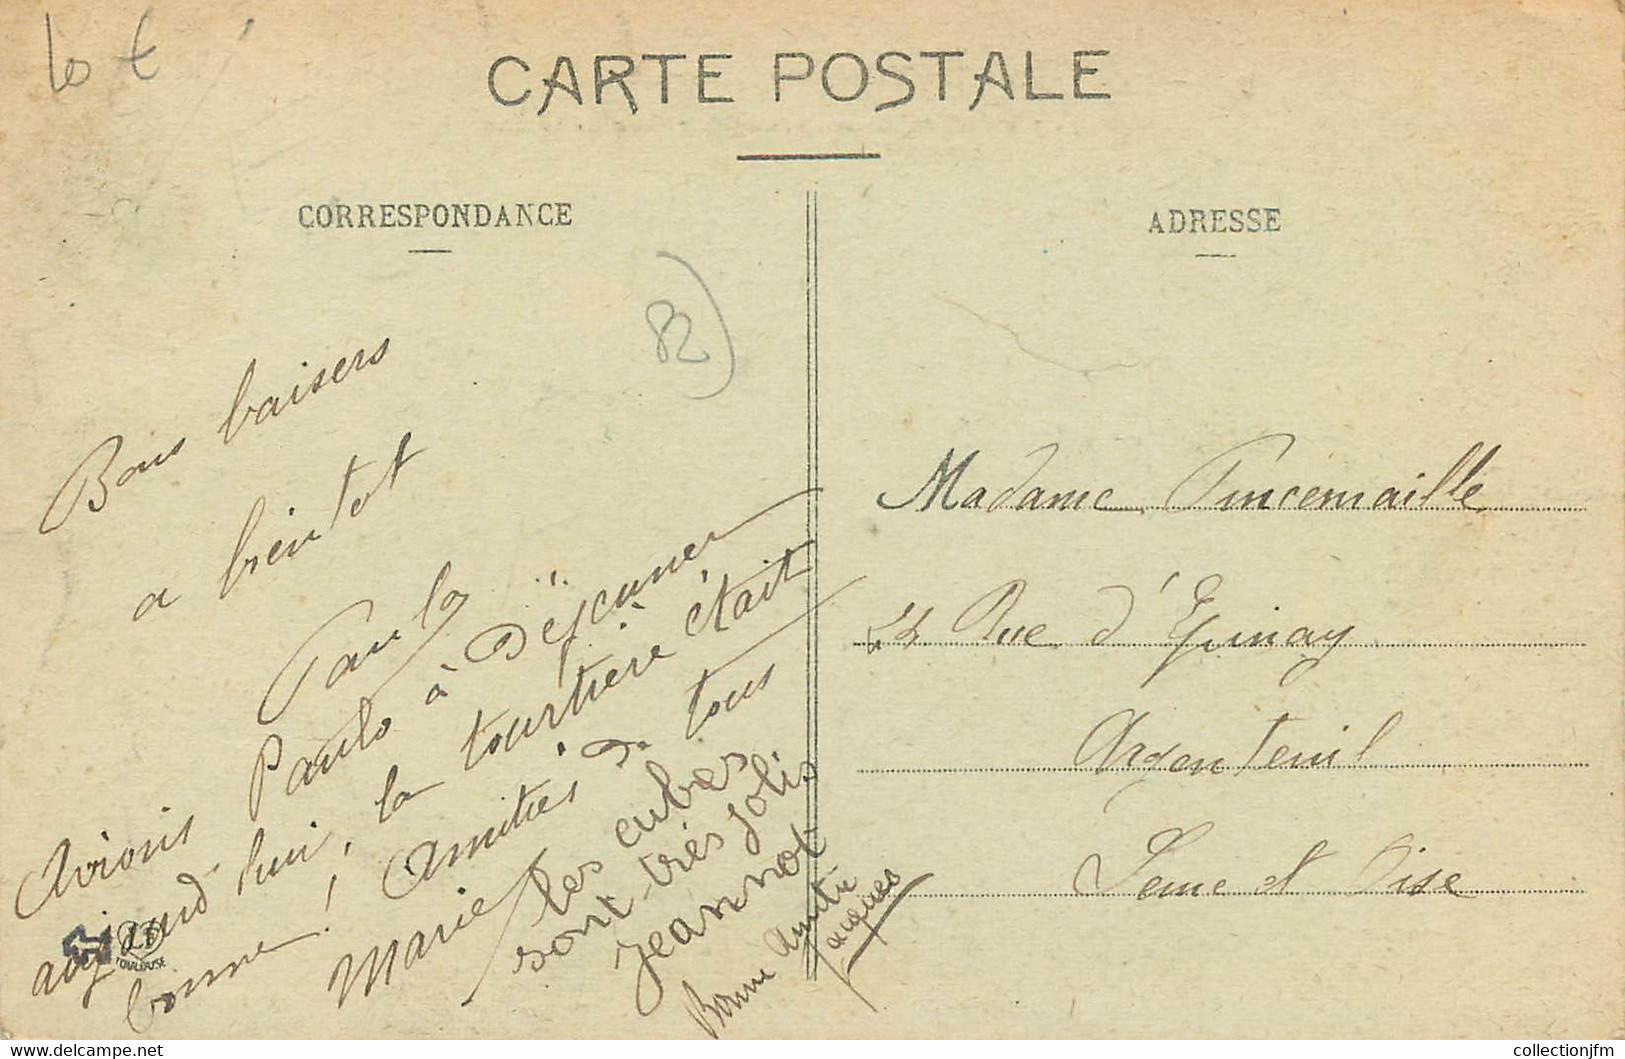 lo t
CARTE POSTALE
CORRESPONDANCE
82)
Bons baisers
a bientot
Paulo
Avions Paulo à Déjeuner
aujourd'hui, la tourtière était
bonne! Amitiés de tous
Marie
les cubes
sont très jolis
Jeannot
Bonne Amitié
Jacques
TOULOUSE
ADRESSE
Madame Pincemaille
Rue d'Epinay
Argenteuil
Seine et Oise
delcampe.net
collectionjfm